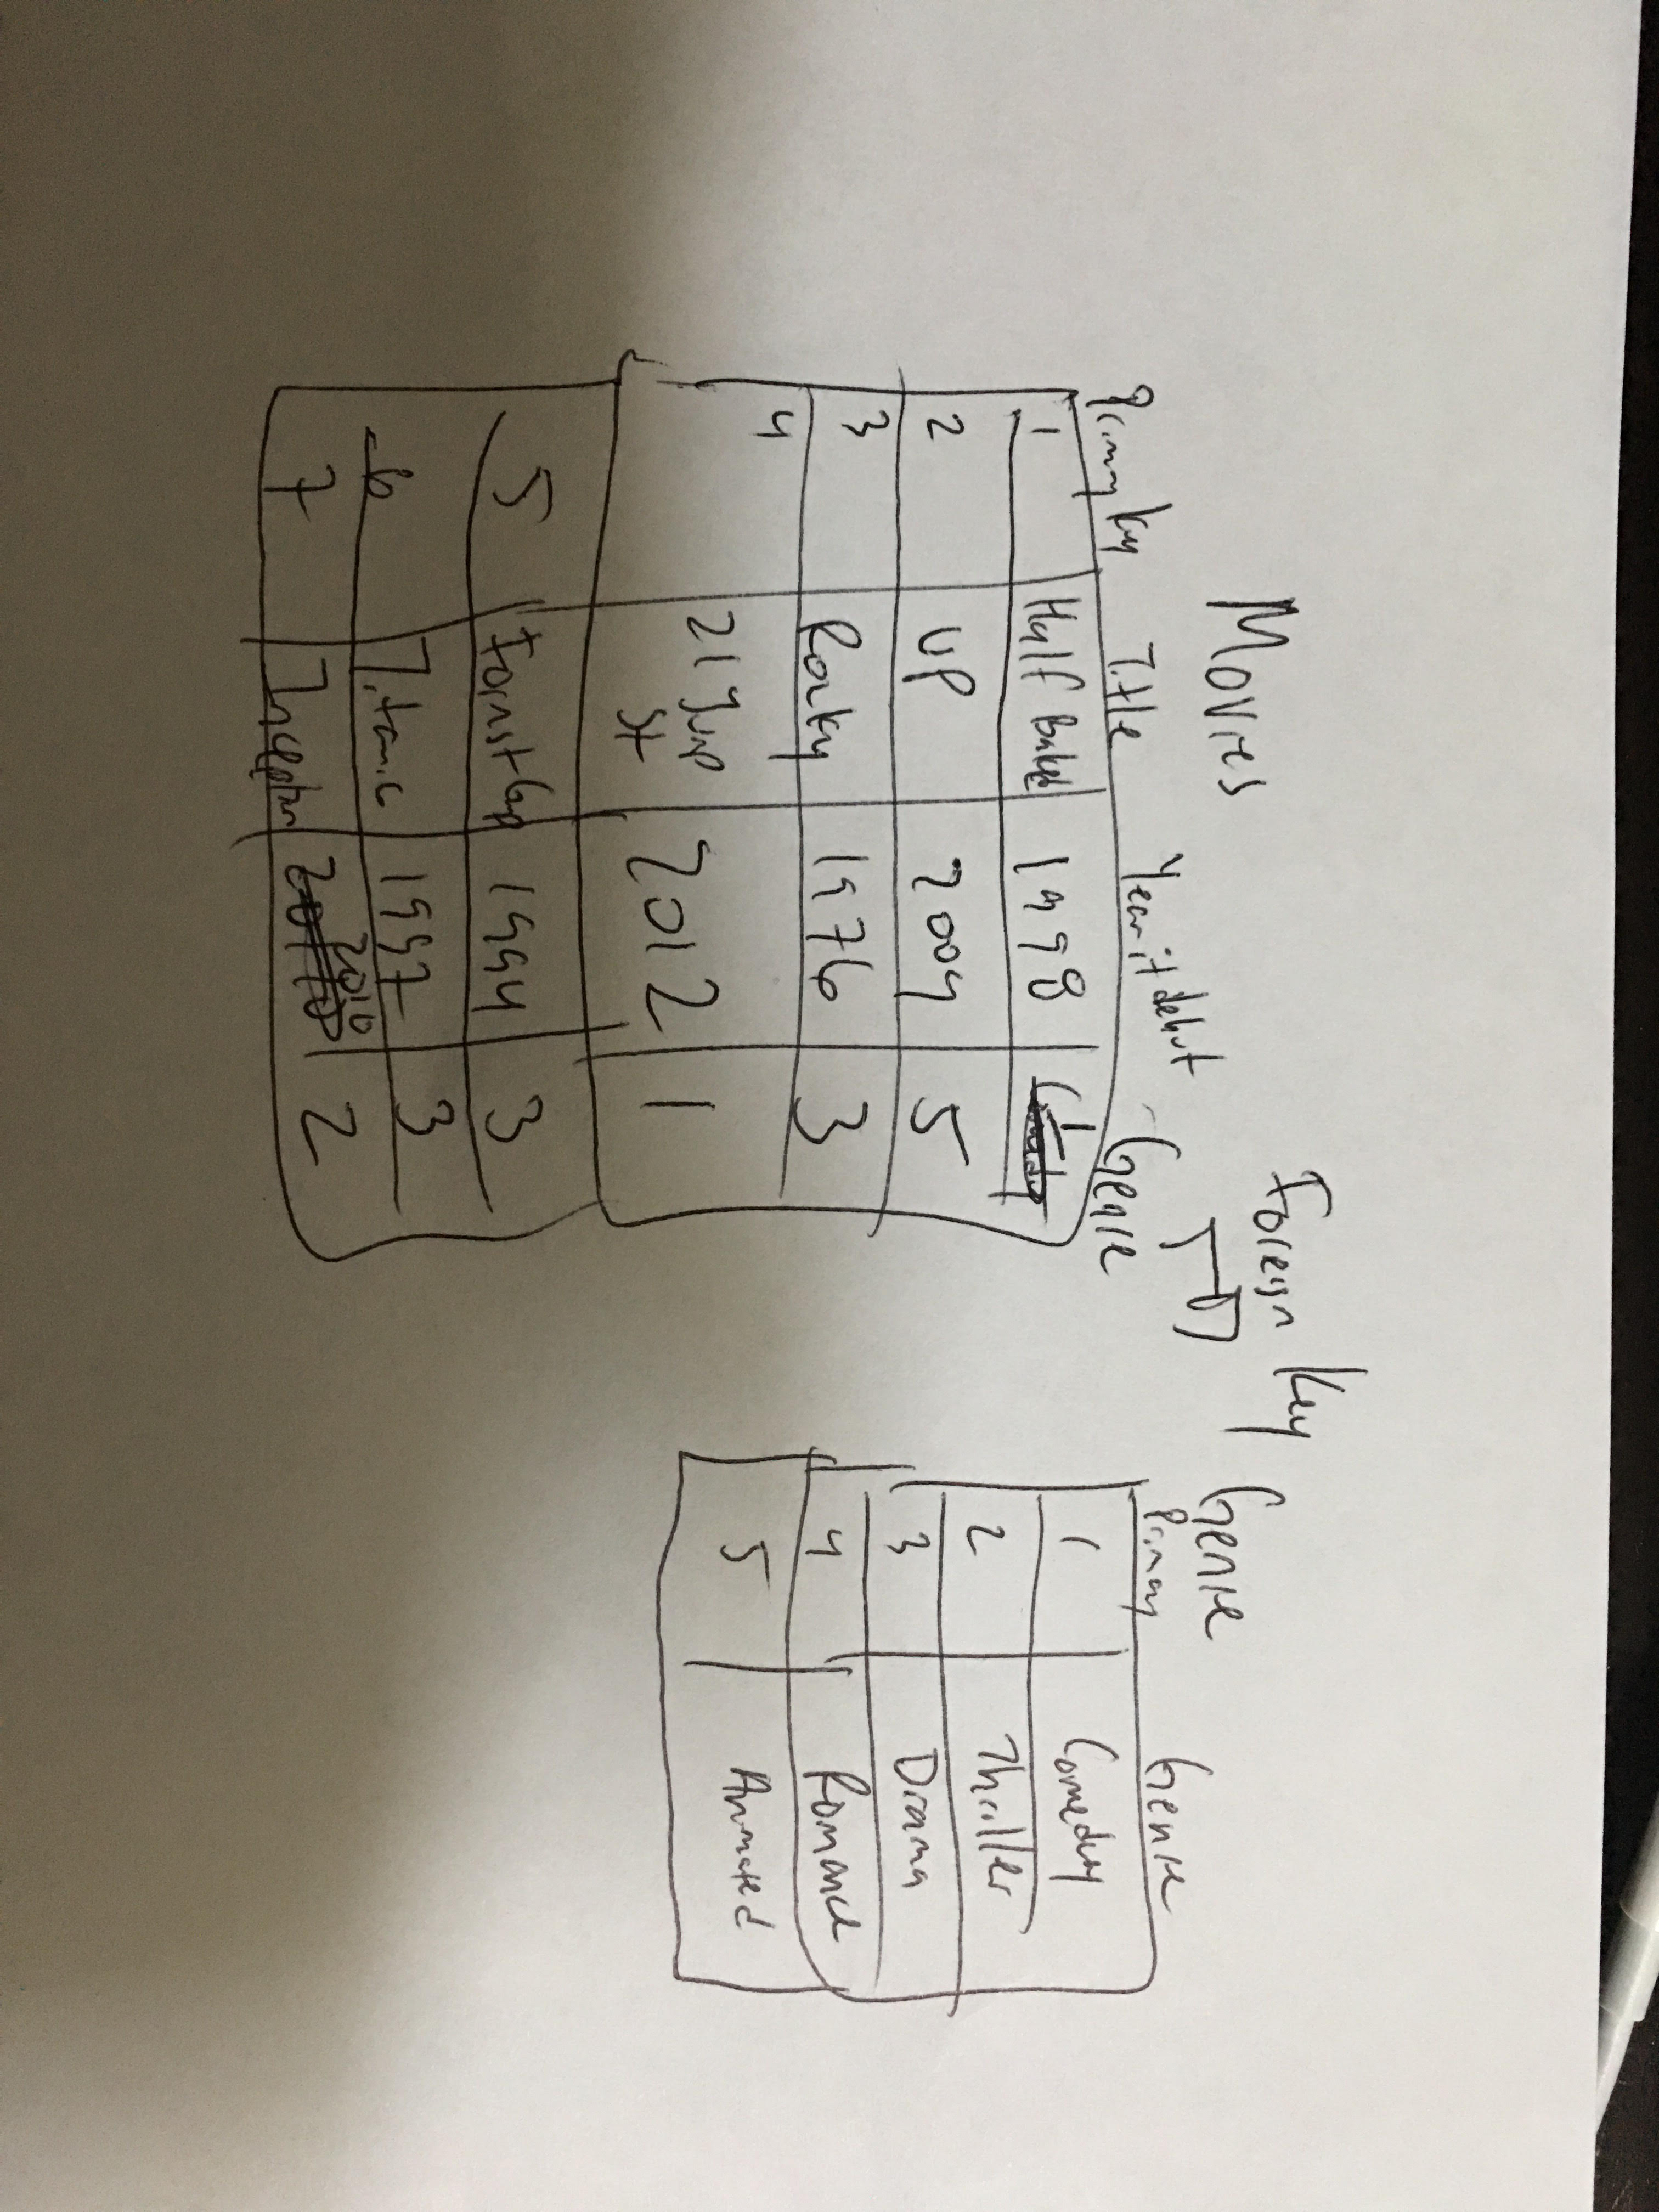 Movies
Foreign Key
Primary Key Title Year it debut Genre
1 Half Baked 1998 1
2 UP 2009 5
3 Rocky 1976 3
4 21 Jump St 2012 1
5 Forrest Gump 1994 3
6 Titanic 1997 3
7 Inception 2010 2
Genre
Primary Genre
1 Comedy
2 Thriller
3 Drama
4 Romance
5 Animated